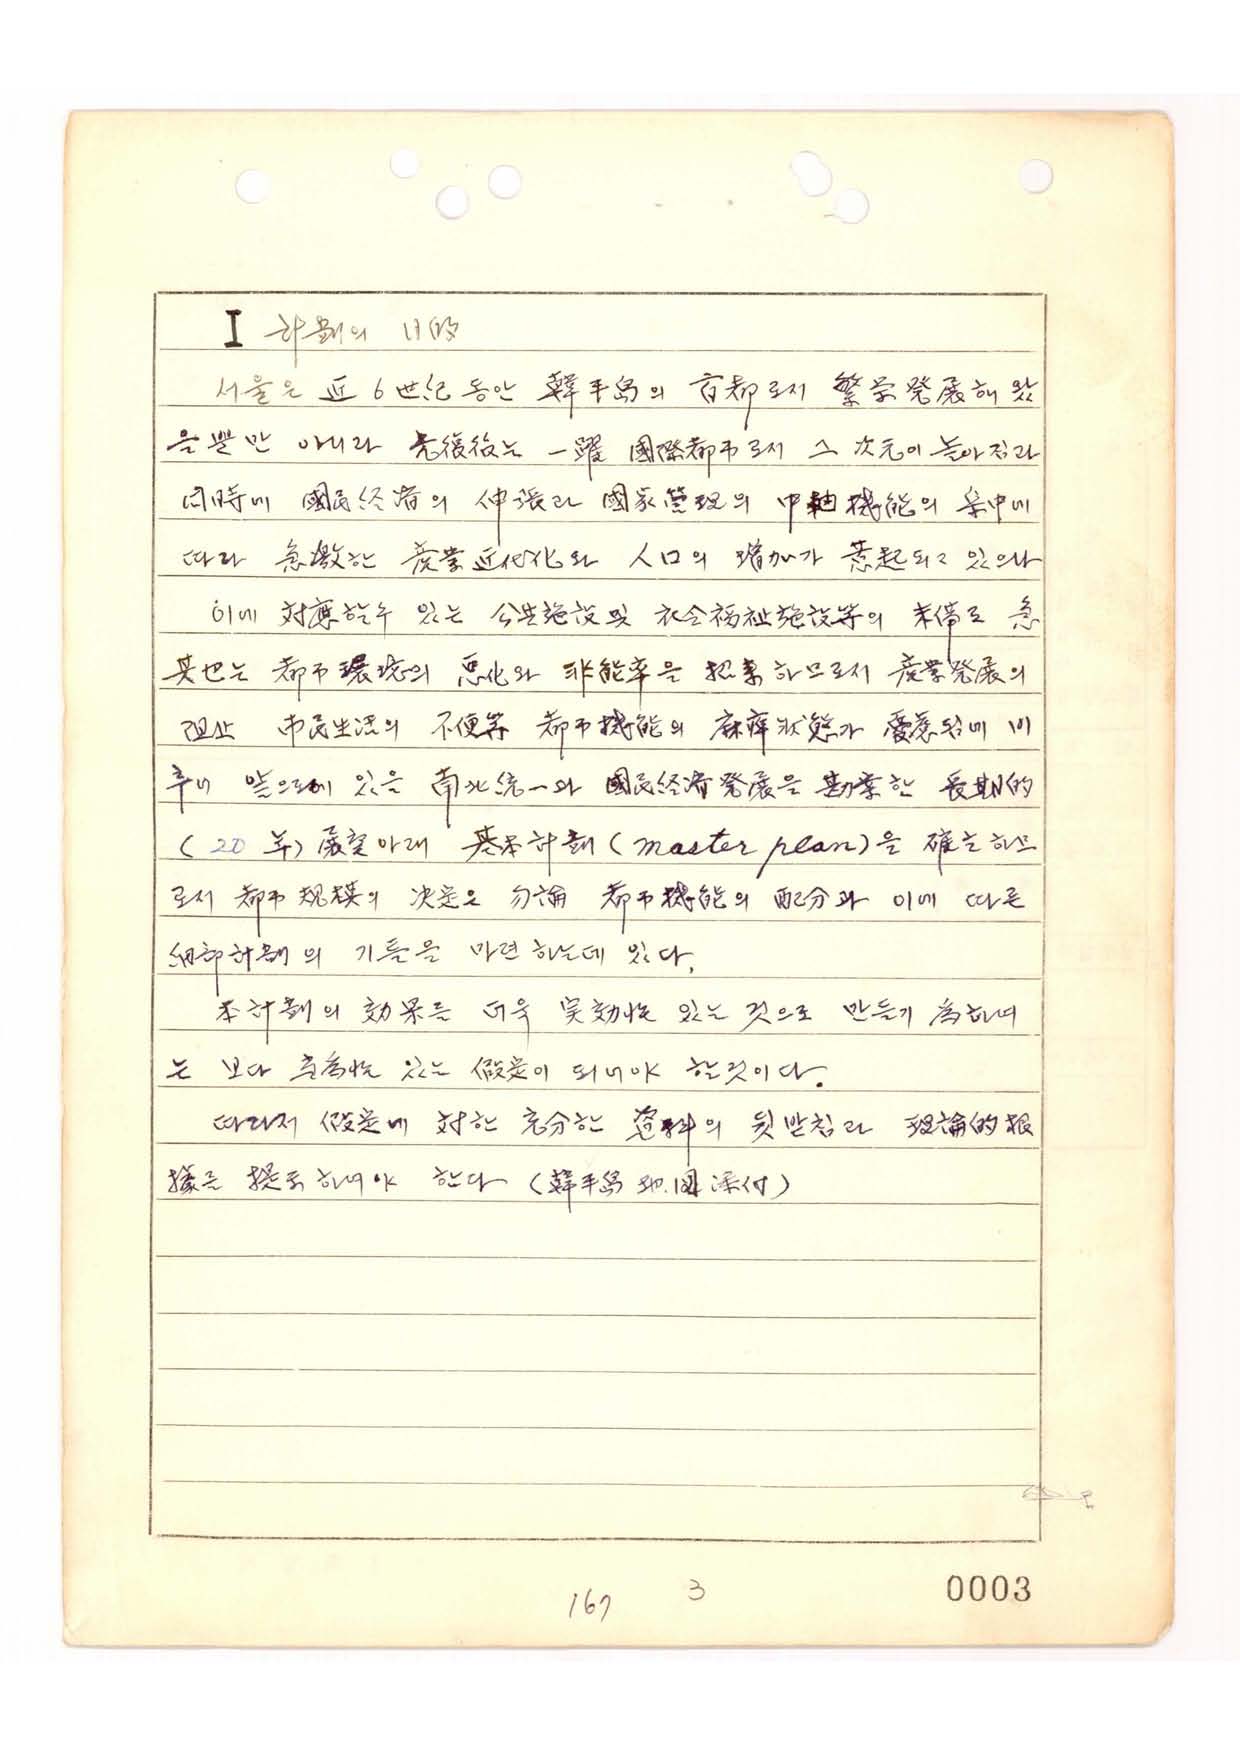 I 計劃의 目的
서울은 近 6世紀 동안 韓半島의 首都로서 繁榮発展해 왔
을 뿐만 아니라 光復後는 一躍 國際都市로서 그 次元이 높아짐과
同時에 國民経済의 伸張과 國家管理의 中軸機能의 集中에
따라 急激한 産業近代化와 人口의 增加가 惹起되고 있으나
이에 対應할수 있는 公共施設 및 社会福祉施設等의 未備로
都市環境의 惡化와 非能率을 招來하므로서 産業発展의
阻止 市民生活의 不便等 都市機能의 麻痺狀態가 憂慮됨에 비
추어 앞으로에 있을 南北統一과 國民経済発展을 勘案한 長期的
(20年) 展望아래 基本計劃(master plan)을 確立하므
로서 都市規模의 決定은 勿論 都市機能의 配分과 이에 따른
細部計劃의 기틀을 마련하는데 있다.
本計劃의 効果를 더욱 実効性 있는 것으로 만들기 爲하여
는 보다 있는 假定이 되어야 할것이다.
따라서 假定에 対한 充分한 資料의 뒷받침과 理論的 根
據를 提示하여야 한다 (韓半島 地図 添付)
167 3 0003